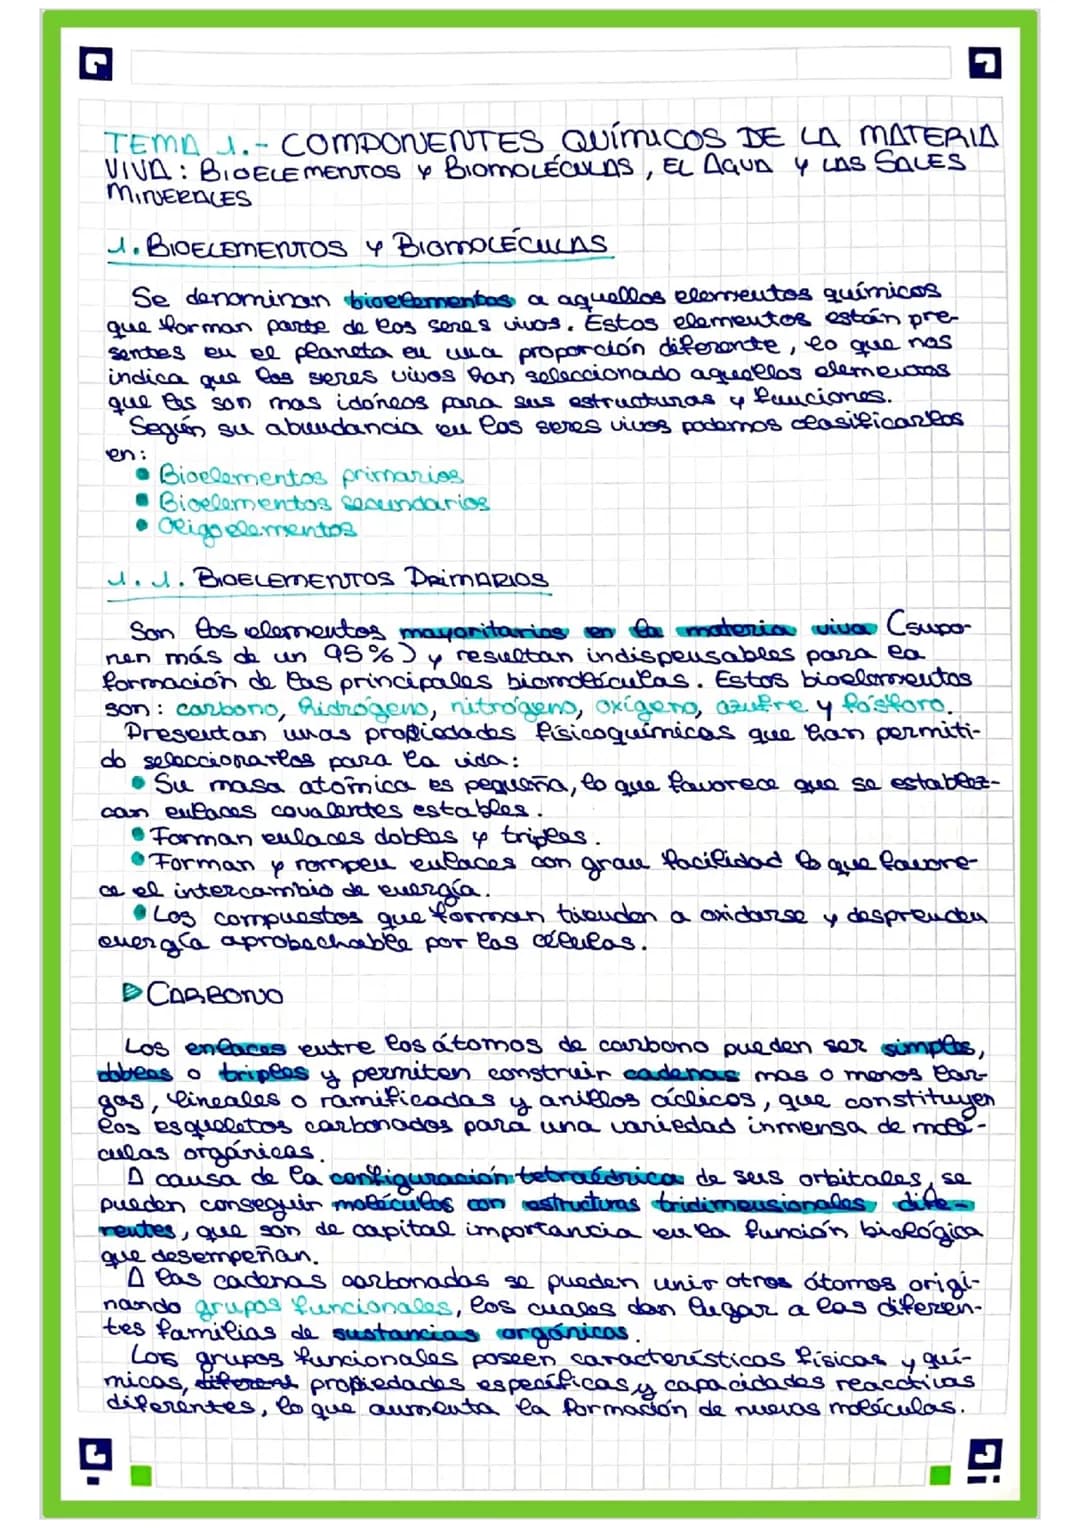 TEMA 1.- COMPONENTES QUÍMICOS DE LA MATERIA
VIVA: BIOELEMENTOS Y BIOMOLÉCULAS, EL AGUA Y LAS SALES
MINERALES
1. BIOELEMENTOS Y BIOMOLÉCULAS
Se denominan bioelementos a aquellos elementos químicos
que forman parte de los seres vivos. Estos elementos están pre-
sentes en el planeta en una proporción diferente, lo que nos
indica que los seres vivos han seleccionado aquellos elementos
que les son mas idóneos para sus estructuras y funciones.
Según su abundancia en los seres vivos podemos clasificarlos
en:
• Bioelementos primarios
• Bioelementos secundarios
• Oligoelementos
1.1. BIOELEMENTOS PRIMARIOS
Son los elementos mayoritarios en la materia viva (supo-
nen más de un 95%) y resultan indispensables para la
formación de las principales biomoléculas. Estos bioelementos
son: carbono, hidrógeno, nitrógeno, oxígeno, azufre y fósforo.
Presentan unas propiedades fisicoquímicas que han permiti-
do seleccionarlos para la vida:
• Su masa atómica es pequeña, lo que favorece que se establez-
can enlaces covalentes estables.
• Forman enlaces dobles y triples.
• Forman y rompen enlaces con gran facilidad lo que favore-
ce el intercambio de energía.
• Los compuestos que forman tienden a oxidarse y desprenden
energía aprobechable por las células.
▷ CARBONO
Los enlaces entre los átomos de carbono pueden ser simples,
dobles o triples y permiten construir cadenas mas o menos lar-
gas, lineales o ramificadas y anillos cíclicos, que constituyen
los esqueletos carbonados para una variedad inmensa de molé-
culas orgánicas.
A causa de la configuración tetraédrica de sus orbitales, se
pueden conseguir moléculas con estructuras tridimensionales dife-
rentes, que son de capital importancia en la función biológica
que desempeñan.
A las cadenas carbonadas se pueden unir otros átomos origi-
nando grupos funcionales, los cuales dan lugar a las diferen-
tes familias de sustancias orgánicas.
Los grupos funcionales poseen características físicas y quí-
micas, diferent propiedades específicas y capacidades reactivas
diferentes, lo que aumenta la formación de nuevas moléculas.